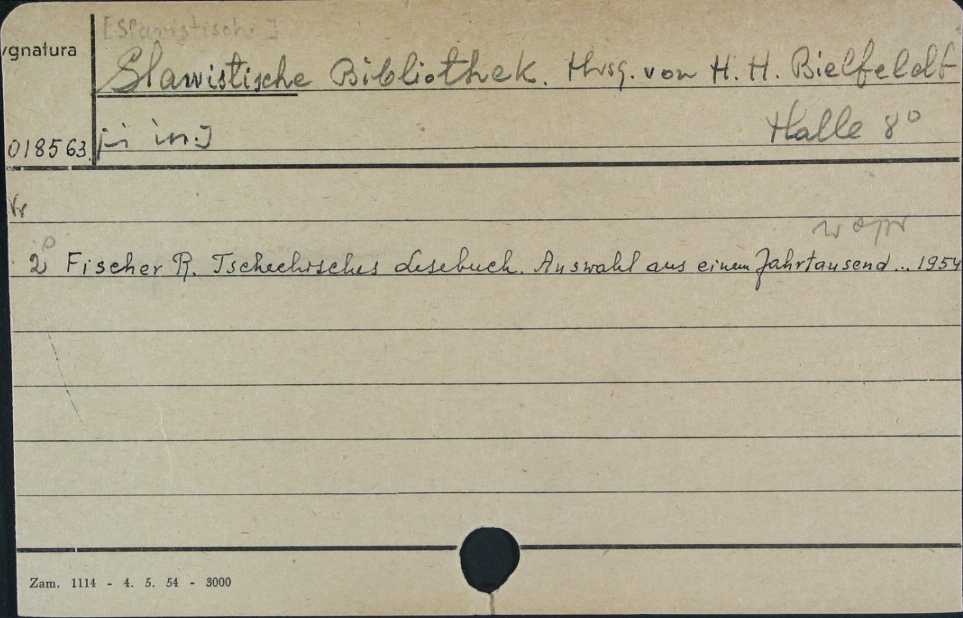 [Slavistische]
ygnatura
Slawistische Bibliothek. Hrsg. von H. H. Bielfeldt
[i in.] Halle 8°
018563
Nr
2 Fischer R. Tschechisches Lesebuch. Auswahl aus einem Jahrtausend... 1954
Zam. 1114 - 4. 5. 54 - 3000